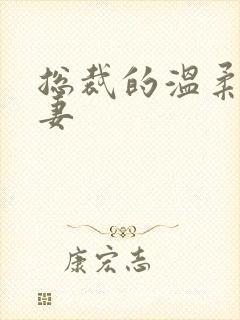 总裁的温柔
妻
康宏志